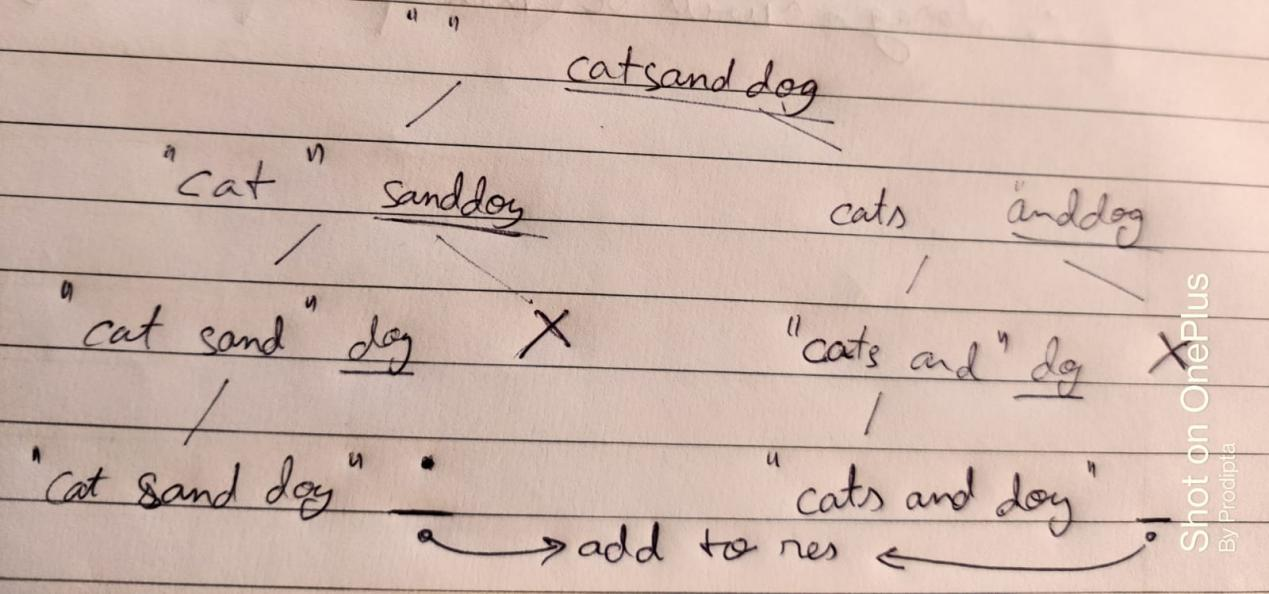 " "
catsanddog
"cat" sanddog cats "anddog
"cat sand" dog X "cats and" dog X
"cat sand dog" _ "cats and dog" _
add to res
Shot on OnePlus
By Prodipta